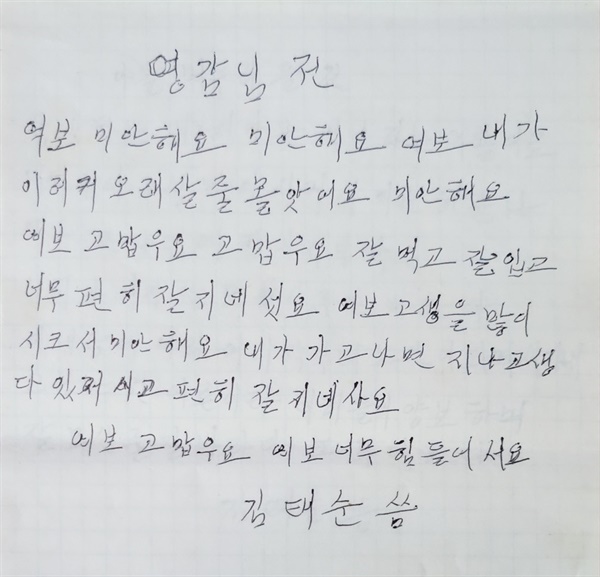 영감님 전
여보 미안해요 미안해요 여보 내가
이러케 오래살줄몰앗어요 미안해요
여보 고맙우요 고맙우요 잘먹고 잘입고
너무 편히 잘지네섯요 여보고생을많이
시크서미안해요 내가 가고나면 지나고생
다 잇저시고편히 잘지네사요
여보 고맙우요 여보너무힘들어서요
김태순 씀